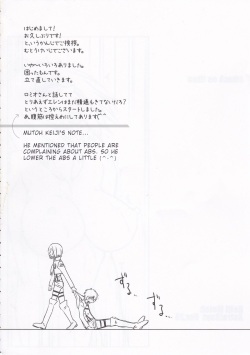 はじめまして!
お久しぶりです!
というかんじでご挨拶。
むとうけいじでございます。
いやーいろいろありました。
困ったもんです。
立て直していきます。
ロミオさんと話してて
とりあえずエレンはまだ精通もきてないだろ?
というところからスタートしました。
あ、腹筋は控えめにしてあります^^
MUTOH KEIJI'S NOTE...
HE MENTIONED THAT PEOPLE ARE
COMPLAINING ABOUT ABS. SO HE
LOWER THE ABS A LITTLE (^-^)
ずる、
ずる、